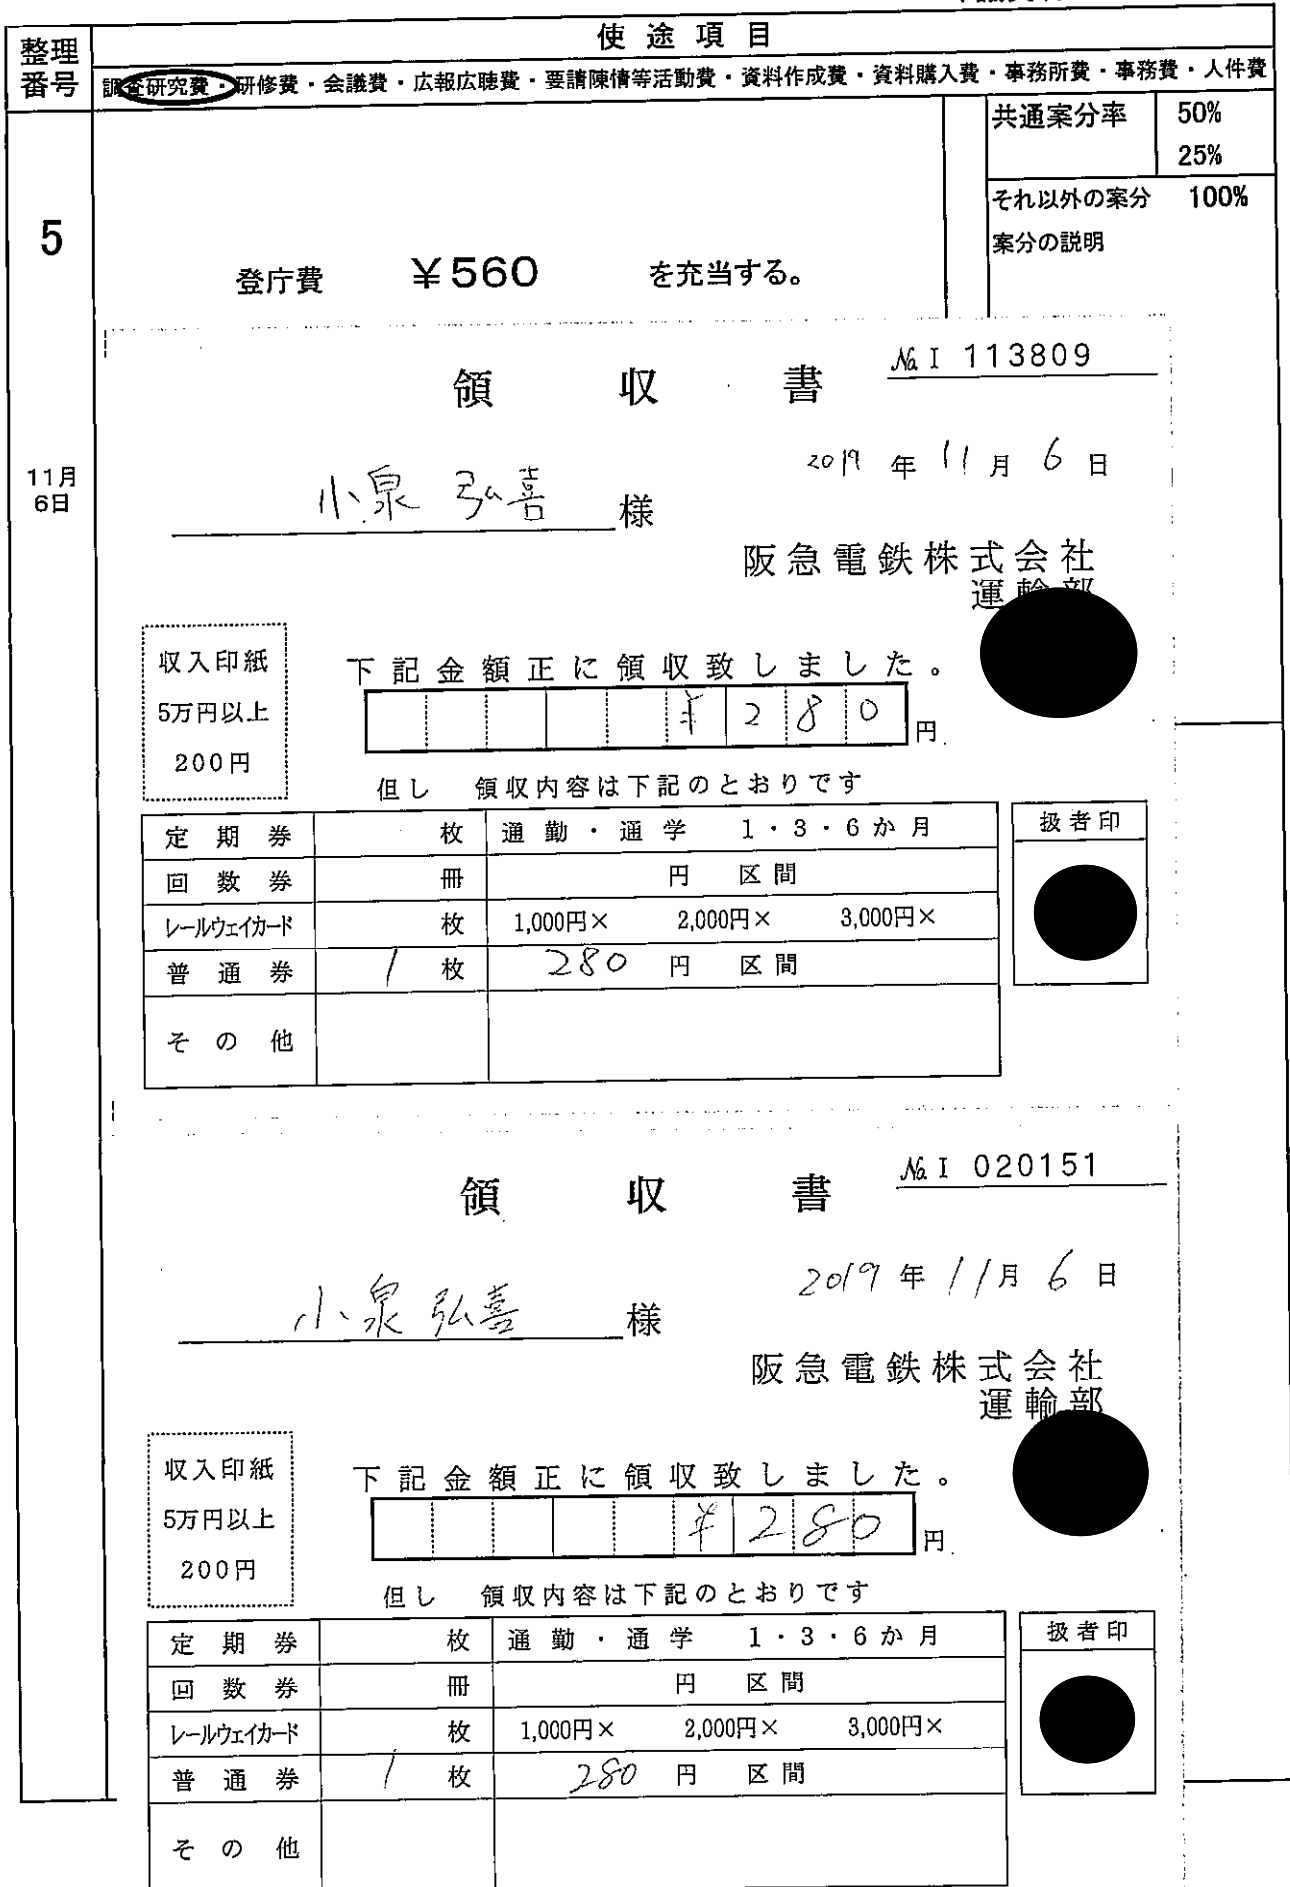 使途項目
整理
番号
調査研究費・研修費・会議費・広報広聴費・要請陳情等活動費・資料作成費・資料購入費・事務所費・事務費・人件費
共通案分率 50%
25%
それ以外の案分 100%
案分の説明
5
登庁費 ¥560 を充当する。
11月
6日
領収書 № I 113809
2019年11月6日
小泉 弘喜 様
阪急電鉄株式会社
運輸部
収入印紙
5万円以上
200円
下記金額正に領収致しました。
¥280円
但し 領収内容は下記のとおりです
定期券 枚 通勤・通学 1・3・6か月
回数券 冊 円 区間
レールウェイカード 枚 1,000円× 2,000円× 3,000円×
普通券 1枚 280円 区間
その他
扱者印
領収書 № I 020151
2019年11月6日
小泉 弘喜 様
阪急電鉄株式会社
運輸部
収入印紙
5万円以上
200円
下記金額正に領収致しました。
¥280円
但し 領収内容は下記のとおりです
定期券 枚 通勤・通学 1・3・6か月
回数券 冊 円 区間
レールウェイカード 枚 1,000円× 2,000円× 3,000円×
普通券 1枚 280円 区間
その他
扱者印